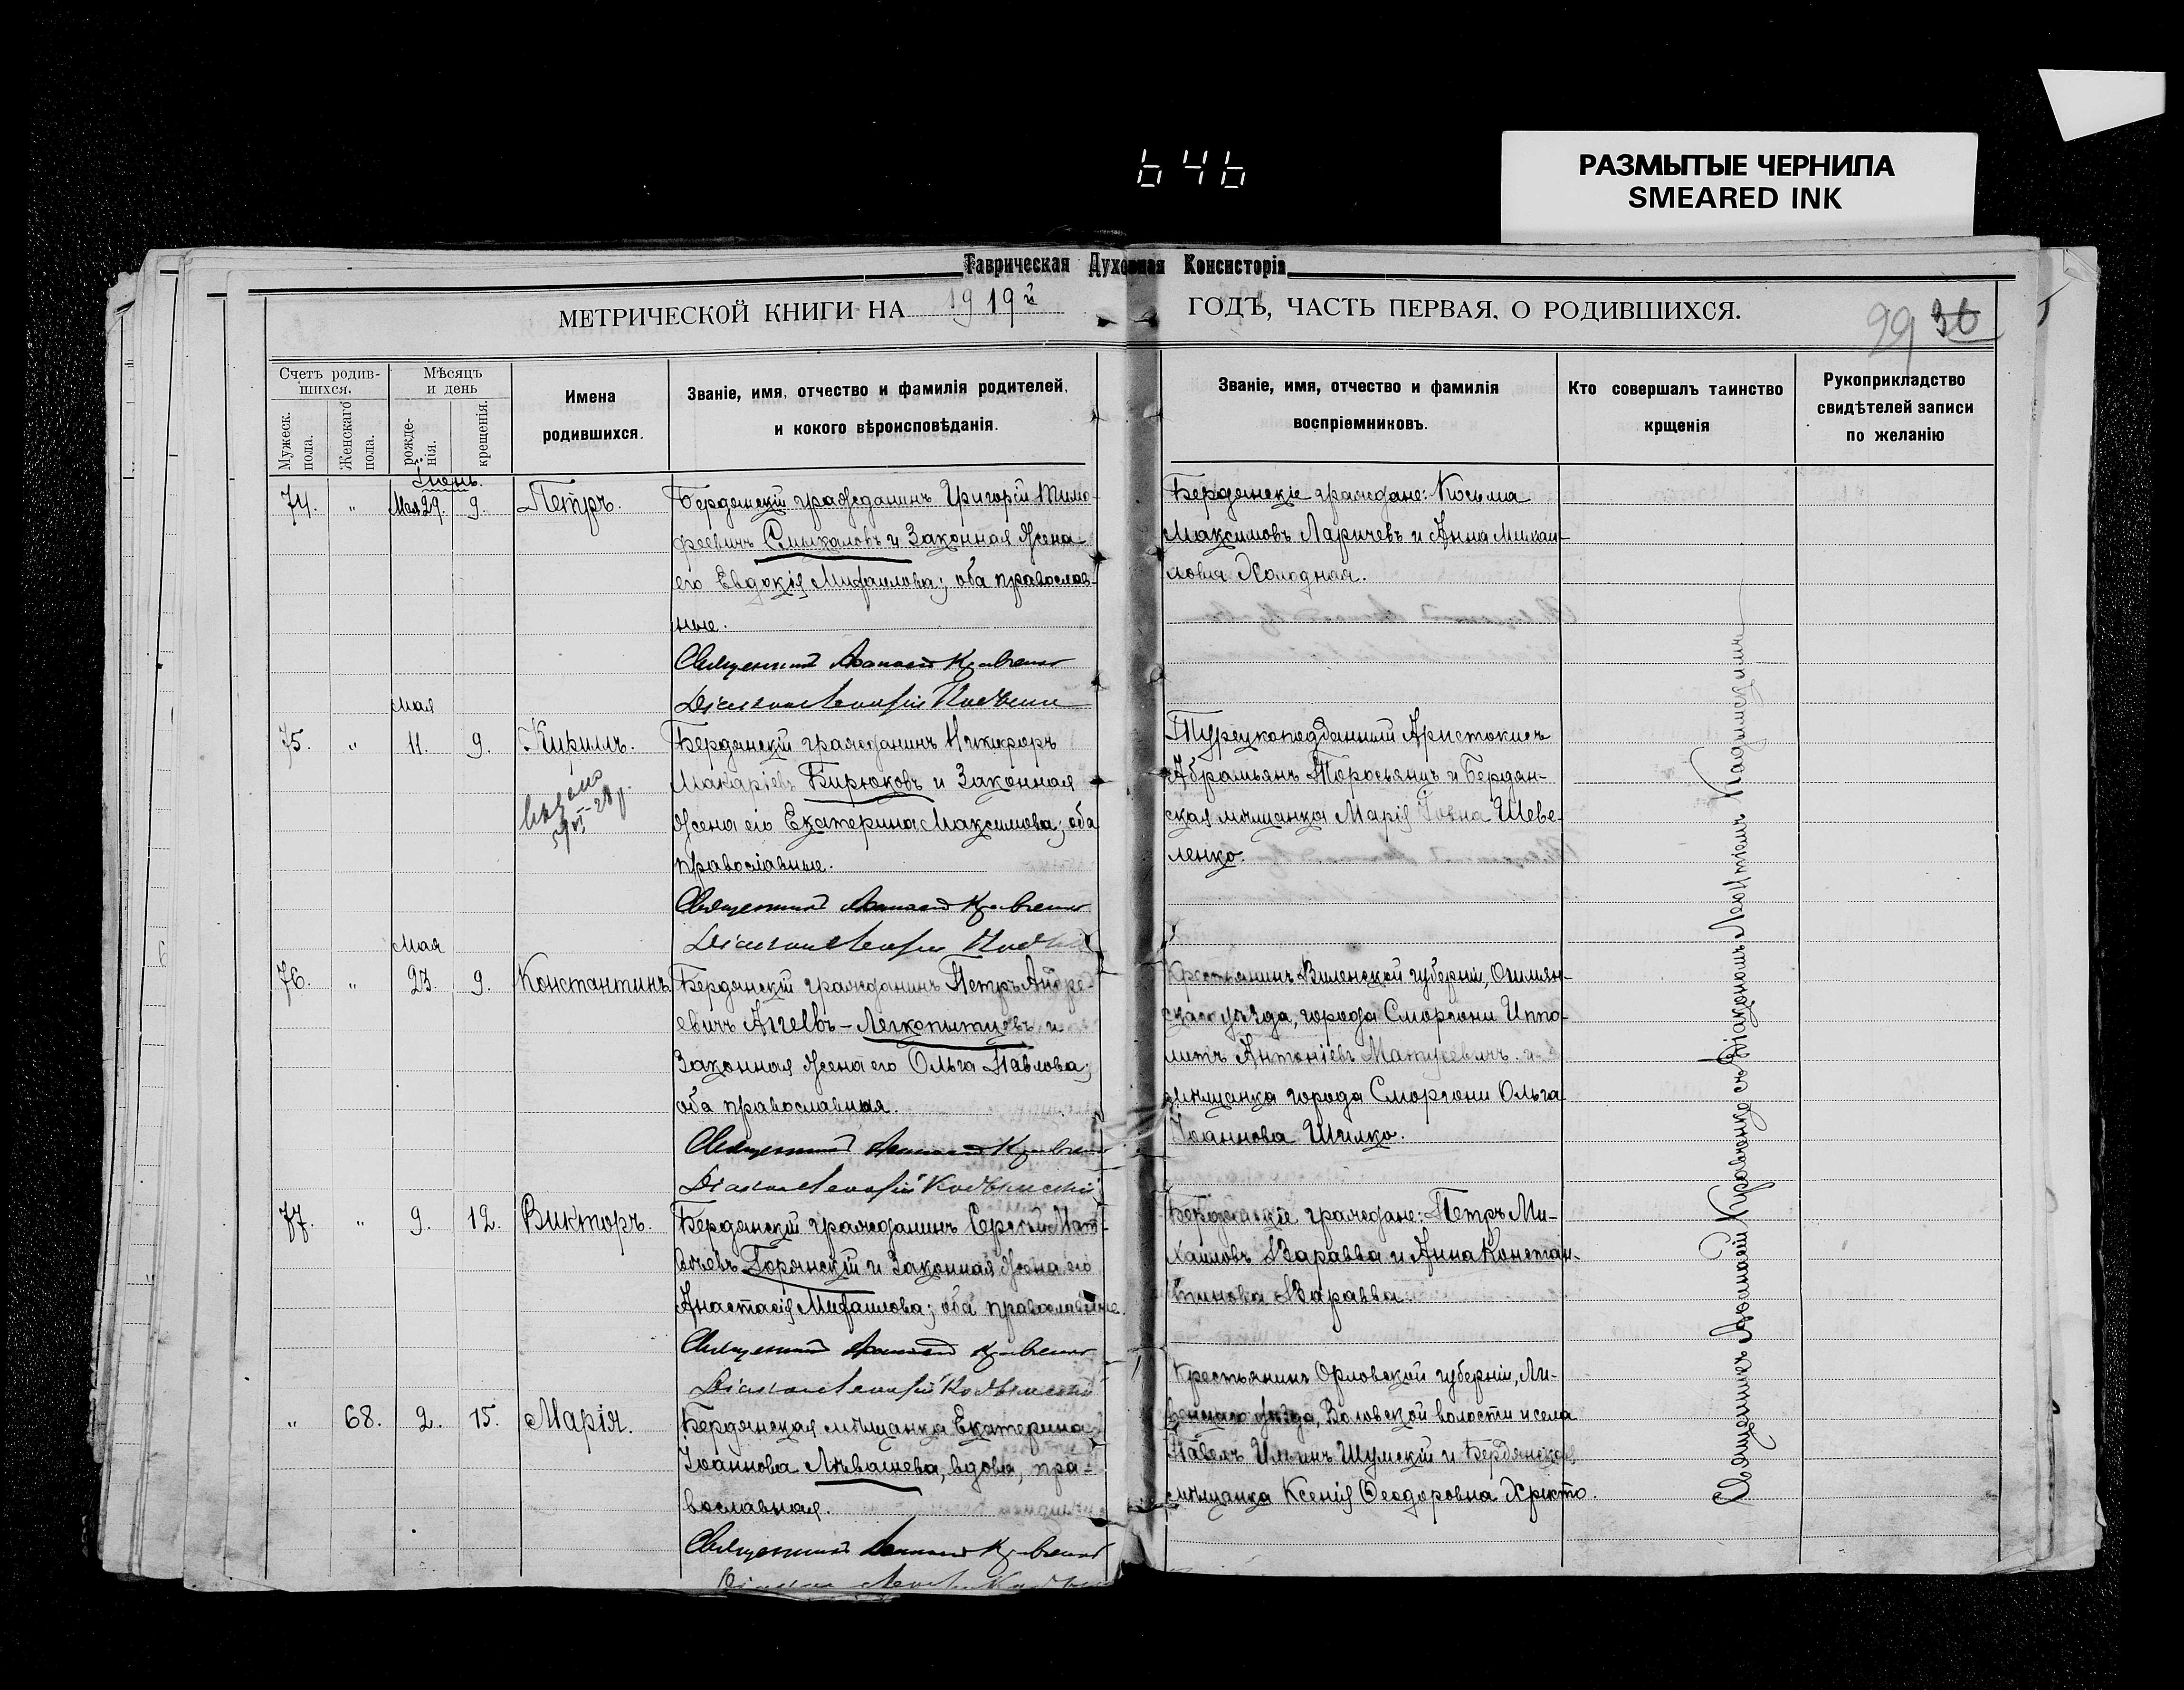 646
РАЗМЫТЫЕ ЧЕРНИЛА
SMEARED INK
Таврическая Духовная Консисторія
МЕТРИЧЕСКОЙ КНИГИ НА 1919й ГОДЪ, ЧАСТЬ ПЕРВАЯ, О РОДИВШИХСЯ.
99 30
Счетъ родив-
шихся.
Мужеск. пола.
Женскаго пола.
Мѣсяцъ
и день
рожде-
нія.
крещенія.
Имена
родившихся.
Званіе, имя, отчество и фамилія родителей,
и кокого вѣроисповѣданія.
Званіе, имя, отчество и фамилія
воспріемниковъ.
Кто совершалъ таинство
крщенія
Рукоприкладство
свидѣтелей записи
по желанію
Іюнь.
74. " Мая 29. 9. Петръ.
Бердянскій гражданинъ Григорій Тимо-
феевичъ и Законная Жена
его Евдокія Михаилова; оба православ-
ные.
Священникъ Афанасій Кравченко
Бердянскіе граждане: Косьма
Максимовъ Ларичевъ и Анна Михаи-
лова Холодная.
Мая
75. " 11. 9. Кирилъ.
Бердянскій гражданинъ Никифоръ
Макаріевъ Бирюковъ и Законная
Жена его Екатерина Максимова; оба
православные.
Священникъ Афанасій Кравченко
Турецкоподданный
Абрамьянъ Торосьянцъ и Бердян-
ская мѣщанка Марія Іовна Шеве-
ленко.
Мая
76. " 23. 9. Константинъ
Бердянскій гражданинъ Петръ Андре-
евичъ Легкопытцевъ и
Законная Жена его Ольга Павлова;
оба православная.
Священникъ Афанасій Кравченко
Крестьянинъ Виленской губерніи, Ошмян-
скаго уѣзда, города Сморгони Иппо-
литъ Антоніевъ Матусевичъ и
мѣщанка города Сморгони Ольга
Іоаннова Шилко.
77. " 9. 12. Викторъ.
Бердянскій гражданинъ Сергѣй Мат-
вѣевъ Горянскій и Законная Жена его
Анастасія Михаилова; оба православные.
Священникъ Афанасій Кравченко
Бердянскіе граждане: Петръ Ми-
хаиловъ Варавва и Анна Констан-
тинова Варавва.
" 68. 2. 15. Марія.
Бердянская мѣщанка Екатерина
Іоаннова Лѣвашева, вдова, пра-
вославная.
Священникъ Афанасій Кравченко
Крестьянинъ Орловской губерніи, Ли-
венскаго уѣзда, Воловской волости и села
Павелъ Ильинъ Шумскій и Бердянская
мѣщанка Ксенія Ѳеодоровна Христо.
Священникъ Афанасій Кравченко съ Діакономъ Леонтіемъ